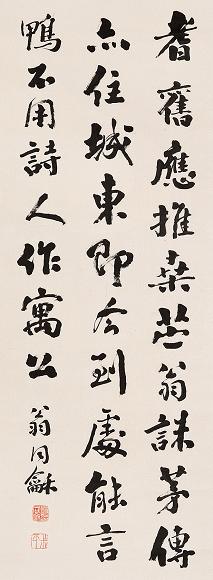 耆舊應推桑苧翁誅茅傳
亦住城東即今到處能言
鴨不用詩人作寓公
翁同龢